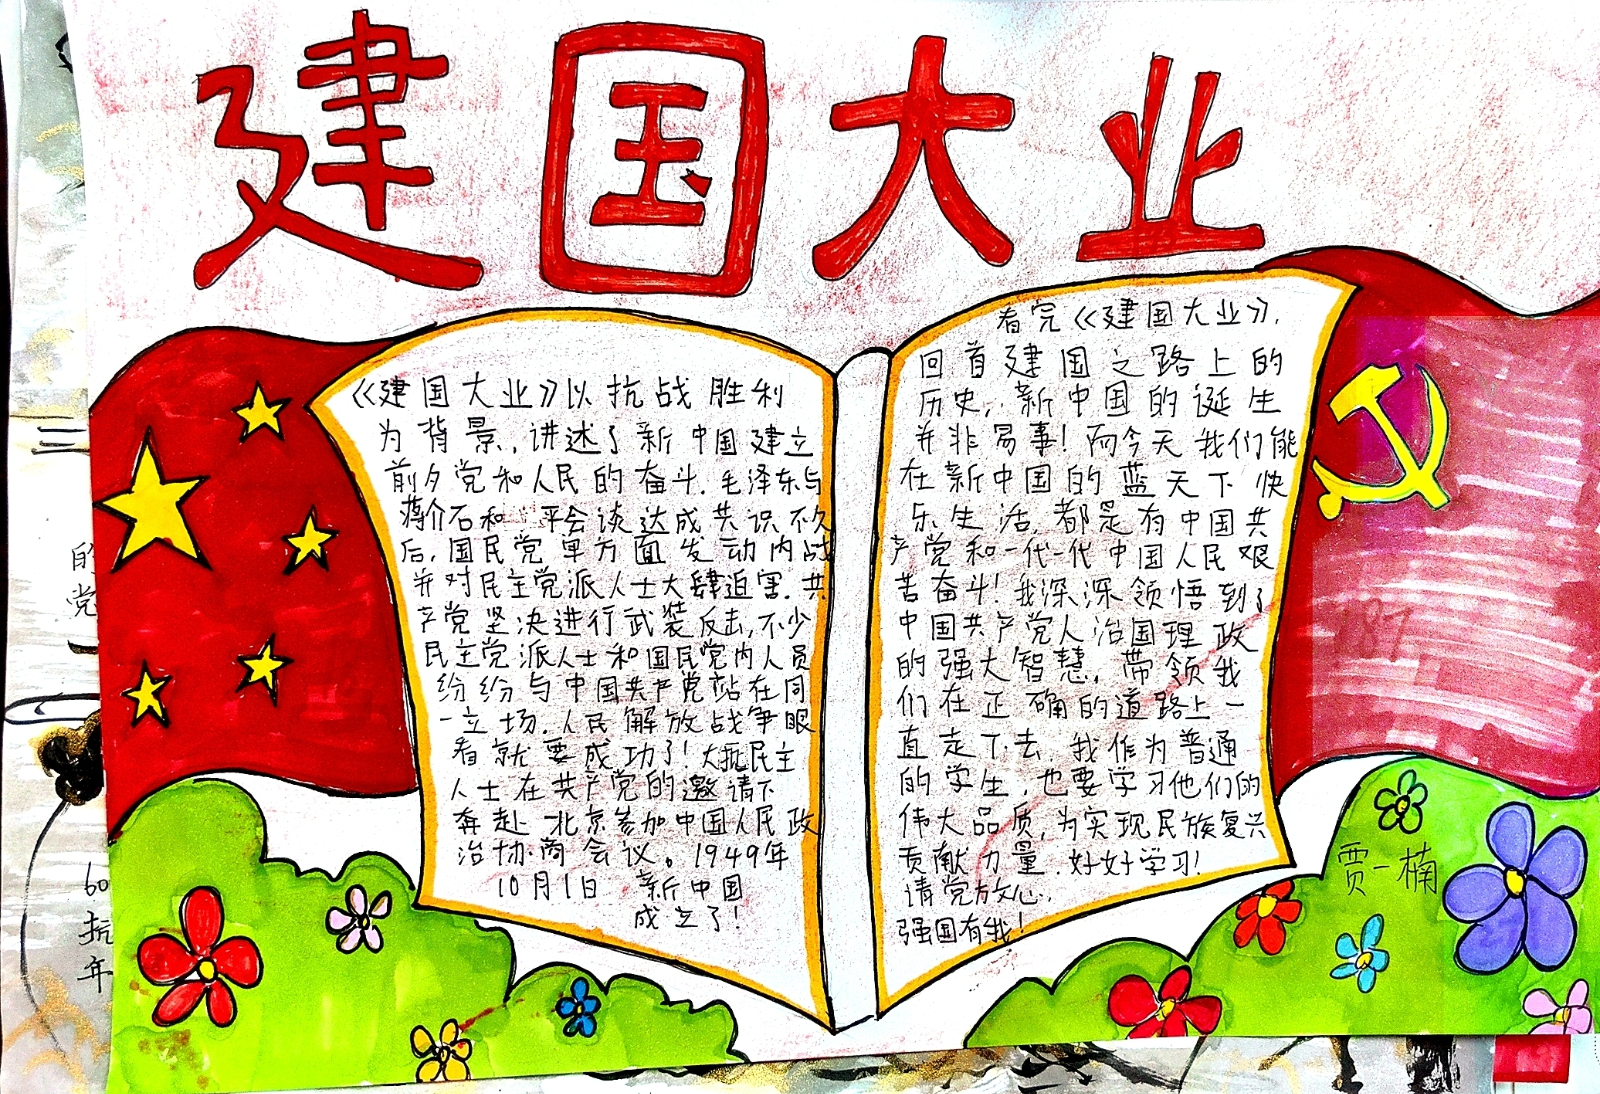 建国大业
《建国大业》以抗战胜利
为背景,讲述了新中国建立
前夕党和人民的奋斗.毛泽东与
蒋介石和平会谈达成共识不久
后,国民党单方面发动内战
并对民主党派人士大肆迫害.共
产党坚决进行武装反击,不少
民主党派人士和国民党内人员
纷纷与中国共产党站在同
一立场.人民解放战争眼
看就要成功了!大批民主
人士在共产党的邀请下
奔赴北京参加中国人民政
治协商会议。1949年
10月1日 新中国
成立了!
看完《建国大业》,
回首建国之路上的
历史,新中国的诞生
并非易事!而今天我们能
在新中国的蓝天下快
乐生活,都是有中国共
产党和一代一代中国人民艰
苦奋斗!我深深领悟到了
中国共产党人治国理政
的强大智慧,带领我
们在正确的道路上一
直走下去.我作为普通
的学生,也要学习他们的
伟大品质,为实现民族复兴
贡献力量.好好学习!
请党放心,
强国有我!
贾一楠
的
党
60
抗
年
187